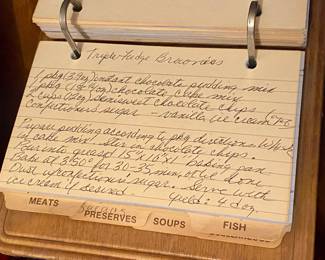 Triple-Fudge Brownies
1 pkg (3.9oz) instant chocolate pudding mix
1 pkg (18¼ oz) chocolate cake mix
2 cups (12oz) semisweet chocolate chips
Confectioners' sugar - vanilla ice cream
Prepare pudding according to pkg directions. Whisk
in cake mix. Stir in chocolate chips.
Pour into greased 15"x10"x1" baking pan.
Bake at 350° for 30-35 min or til done
Dust w/confectioners' sugar. Serve with
ice cream if desired yield: 4 doz.
MEATS
PRESERVES
SOUPS
FISH